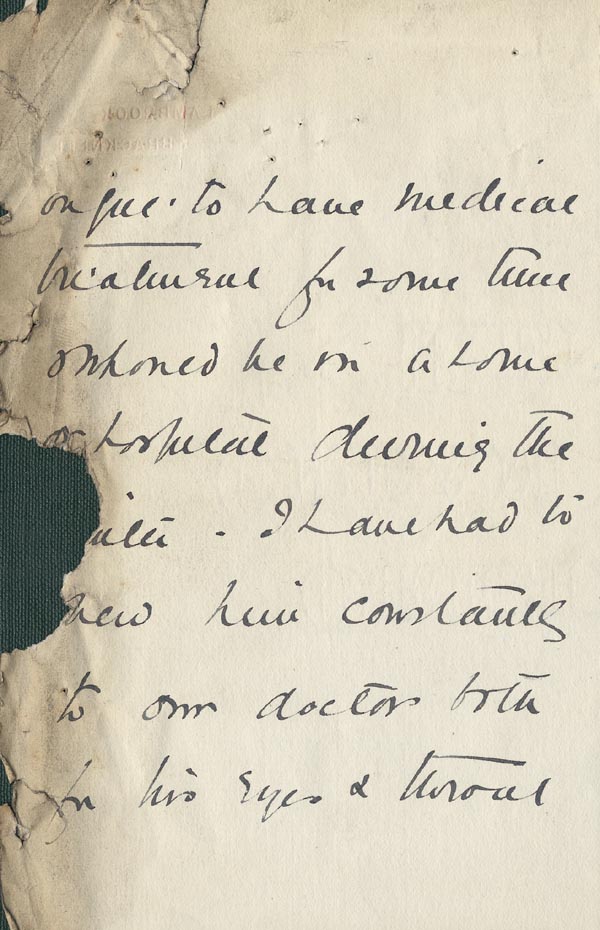 ought to have medical
treatment for some time
& should be in a home
or hospital during the
. I have had to
him constantly
to our doctor both
for his eyes & throat